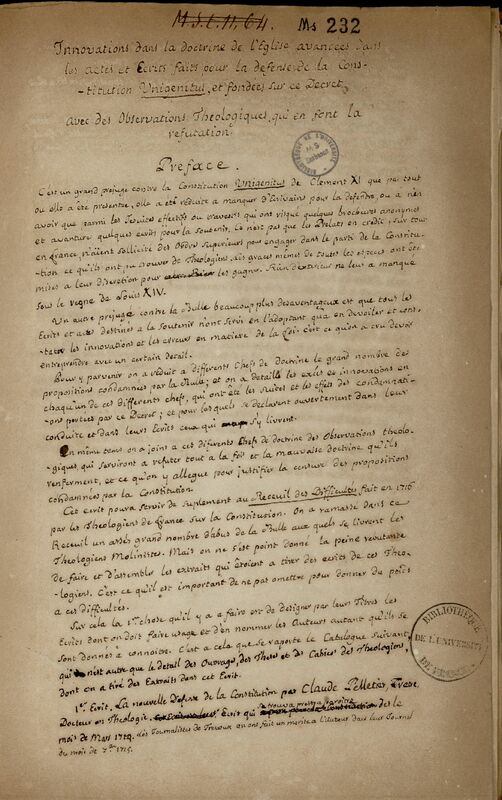 M.S.L.11.64. Ms 232
Innovations dans la doctrine de l'Eglise avancées dans
les actes et Ecrits faits pour la defense de la Cons-
-titution Unigenitus, et fondées sur ce Decret,
avec des Observations Theologiques, qui en font la
refutation.
Preface.
C'est un grand prejugé contre la Constitution Unigenitus de Clement XI que par tout
ou elle a été presentée, elle a été reduite a manquer d'Ecrivains pour la defendre, ou a n'en
avoir que parmi les Jesuites effectifs ou travestis qui ont risqué quelques brochures anonymes
et avanturé quelques ecrits pour la soutenir. Ce n'est pas que les Prelats en credit, sur tout
en france, n'aient sollicité des Ordres Superieurs pour engager dans le parti de la Constitu-
-tion ce qu'ils ont pu trouver de Theologiens. Les graces mêmes de toutes les especes ont été
mises a leur discretion pour les gagner. Rien d'exterieur ne leur a manqué
sous le regne de Louis XIV.
Un autre prejugé contre la Bulle beaucoup plus desavantageux est que tous les
Ecrits et actes destinés a la soutenir n'ont servi en l'adoptant qu'a en devoiler et cons-
-tater les innovations et les erreurs en matiere de la foi. C'est ce qu'on a cru devoir
entreprendre avec un certain detail.
Pour y parvenir on a reduit a differents Chefs de Doctrine le grand nombre des
propositions condamnées par la Bulle; et on a detaillé les excès et innovations en
chaqu'un de ces differents chefs, qui ont été les suites et les effets des condamnati-
-ons portées par ce Decret; et pour lesquels se declarent ouvertement dans leur
conduite et dans leurs Ecrits ceux qui s'y livrent.
En même tems on a joint a ces differents Chefs de doctrine des Observations theolo-
-giques, qui serviront a refuter tout a la fois et la mauvaise doctrine qu'ils
renferment, et ce qu'on y allegue pour justifier la censure des propositions
condamnées par la Constitution.
Cet ecrit poura servir de suplement au Receuil des Difficultés fait en 1716
par les Theologiens de france sur la Constitution. On a ramassé dans ce
Receuil un assés grand nombre d'abus de la Bulle aux quels se livrent les
Theologiens Molinistes. Mais on ne s'est point donné la peine rebutante
de faire et d'assembler les extraits qui etoient a tirer des ecrits de ces Theo-
-logiens. C'est ce qu'il est important de ne pas omettre pour donner du poids
a ces difficultés.
Sur cela la 1re chose qu'il y a a faire est de designer par leurs Titres les
Ecrits dont on doit faire usage et d'en nommer les Auteurs autant qu'ils se
sont donnés a connoitre. C'est a cela que se raporte le Catalogue suivant,
qui n'est autre que le detail des Ouvrages, des Theses et des Cahiers des Theologiens,
dont on a tiré des Extraits dans cet Ecrit.
1er Ecrit. La nouvelle Defense de la Constitution par Claude Pelletier, Pretre,
Docteur en Theologie. Ecrit qui se trouva prest a paroitre des le
mois de Mars 1729. Les Journalistes de Trevoux en ont fait un merite a l'Auteur dans leur Journal
du mois de 7bre 1715.
BIBLIOTHEQUE DE L'UNIVERSITE
M.S
Sorbonne
BIBLIOTHÈQUE
DE L'UNIVERSITÉ
DE FRANCE